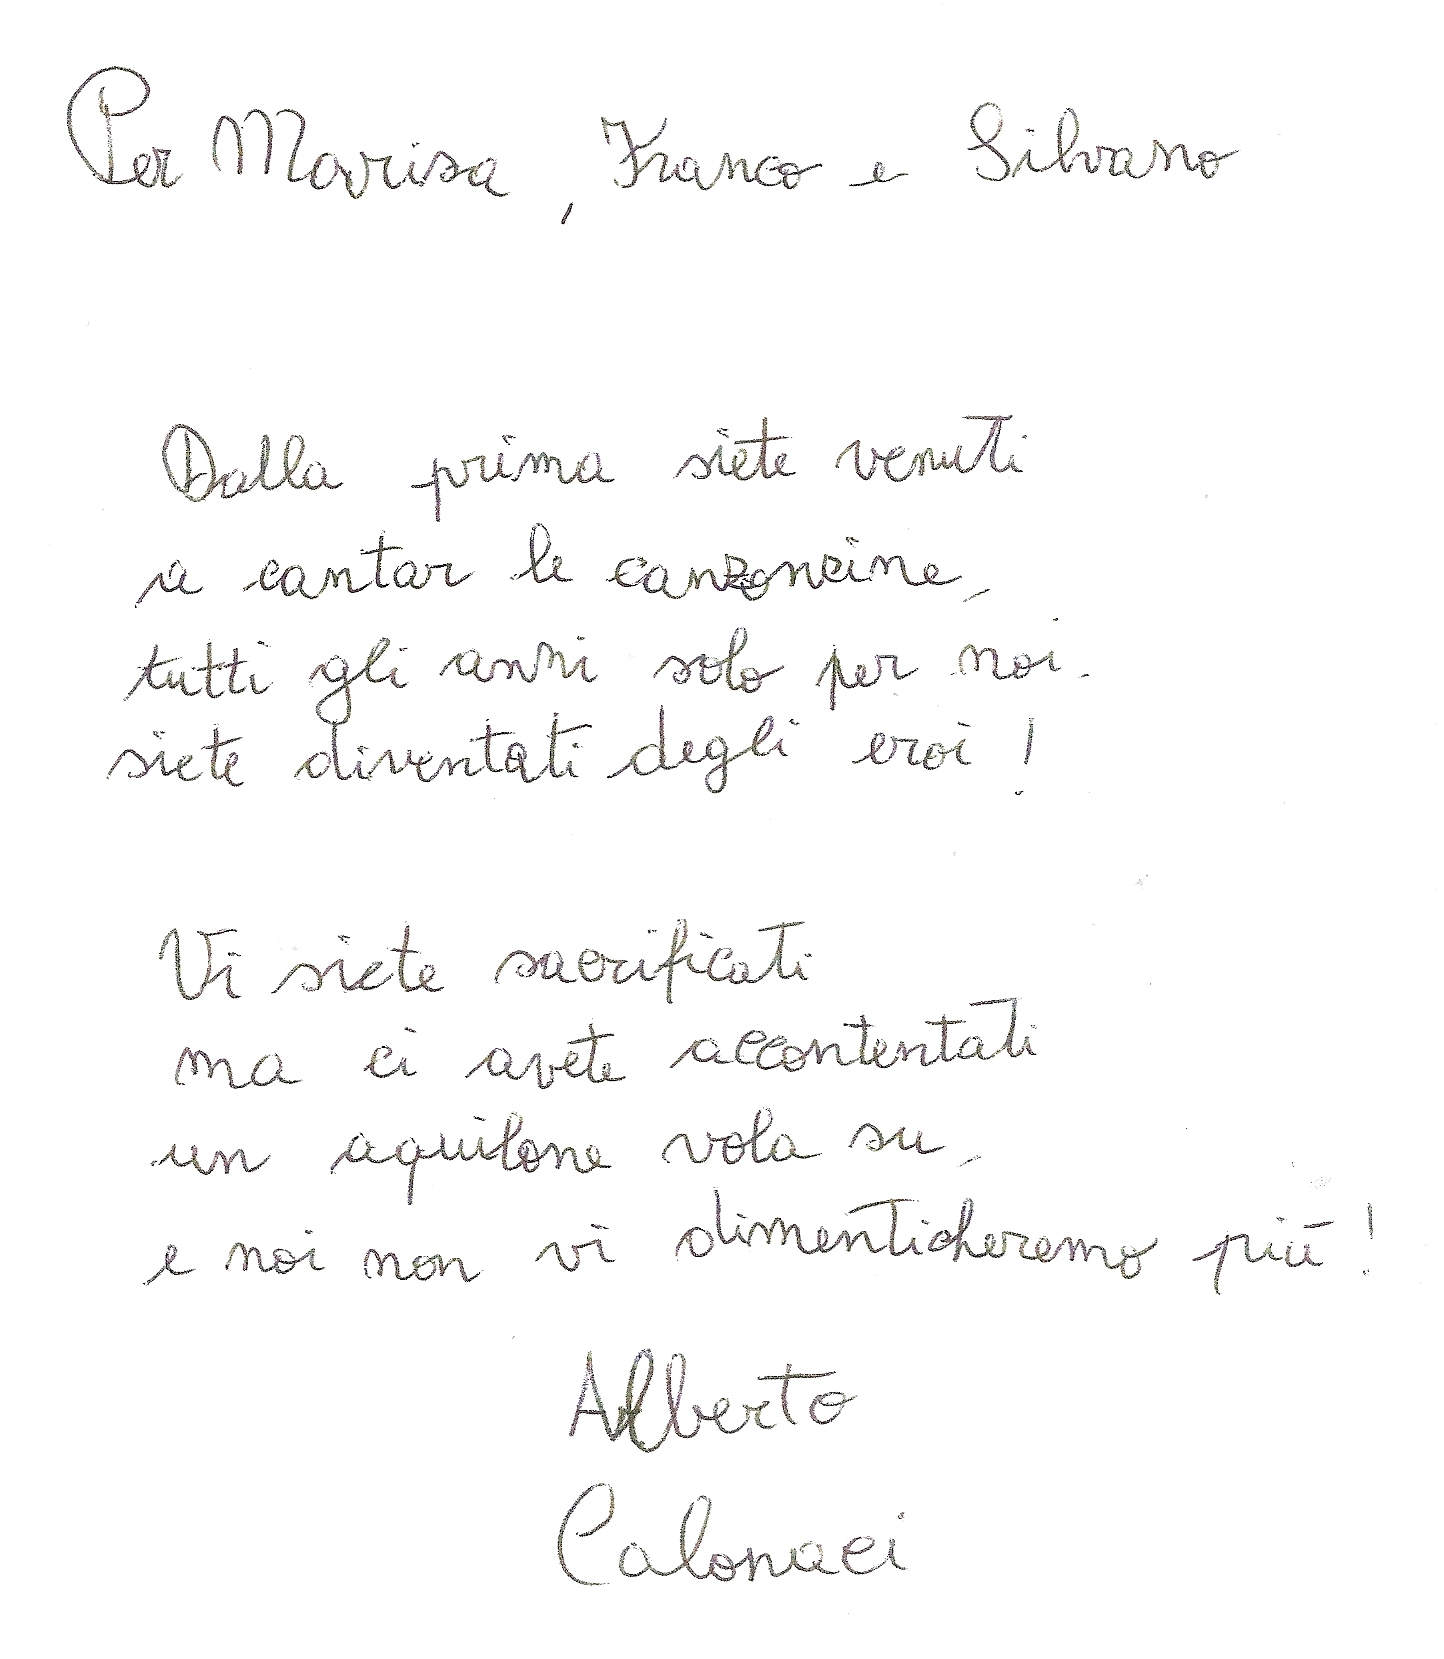 Per Marisa, Franco e Silvano
Dalla prima siete venuti
a cantar le canzoncine,
tutti gli anni solo per noi.
siete diventati degli eroi!
Vi siete sacrificati
ma ci avete accontentati
un aquilone vola su,
e noi non vi dimenticheremo più!
Alberto
Calonaci